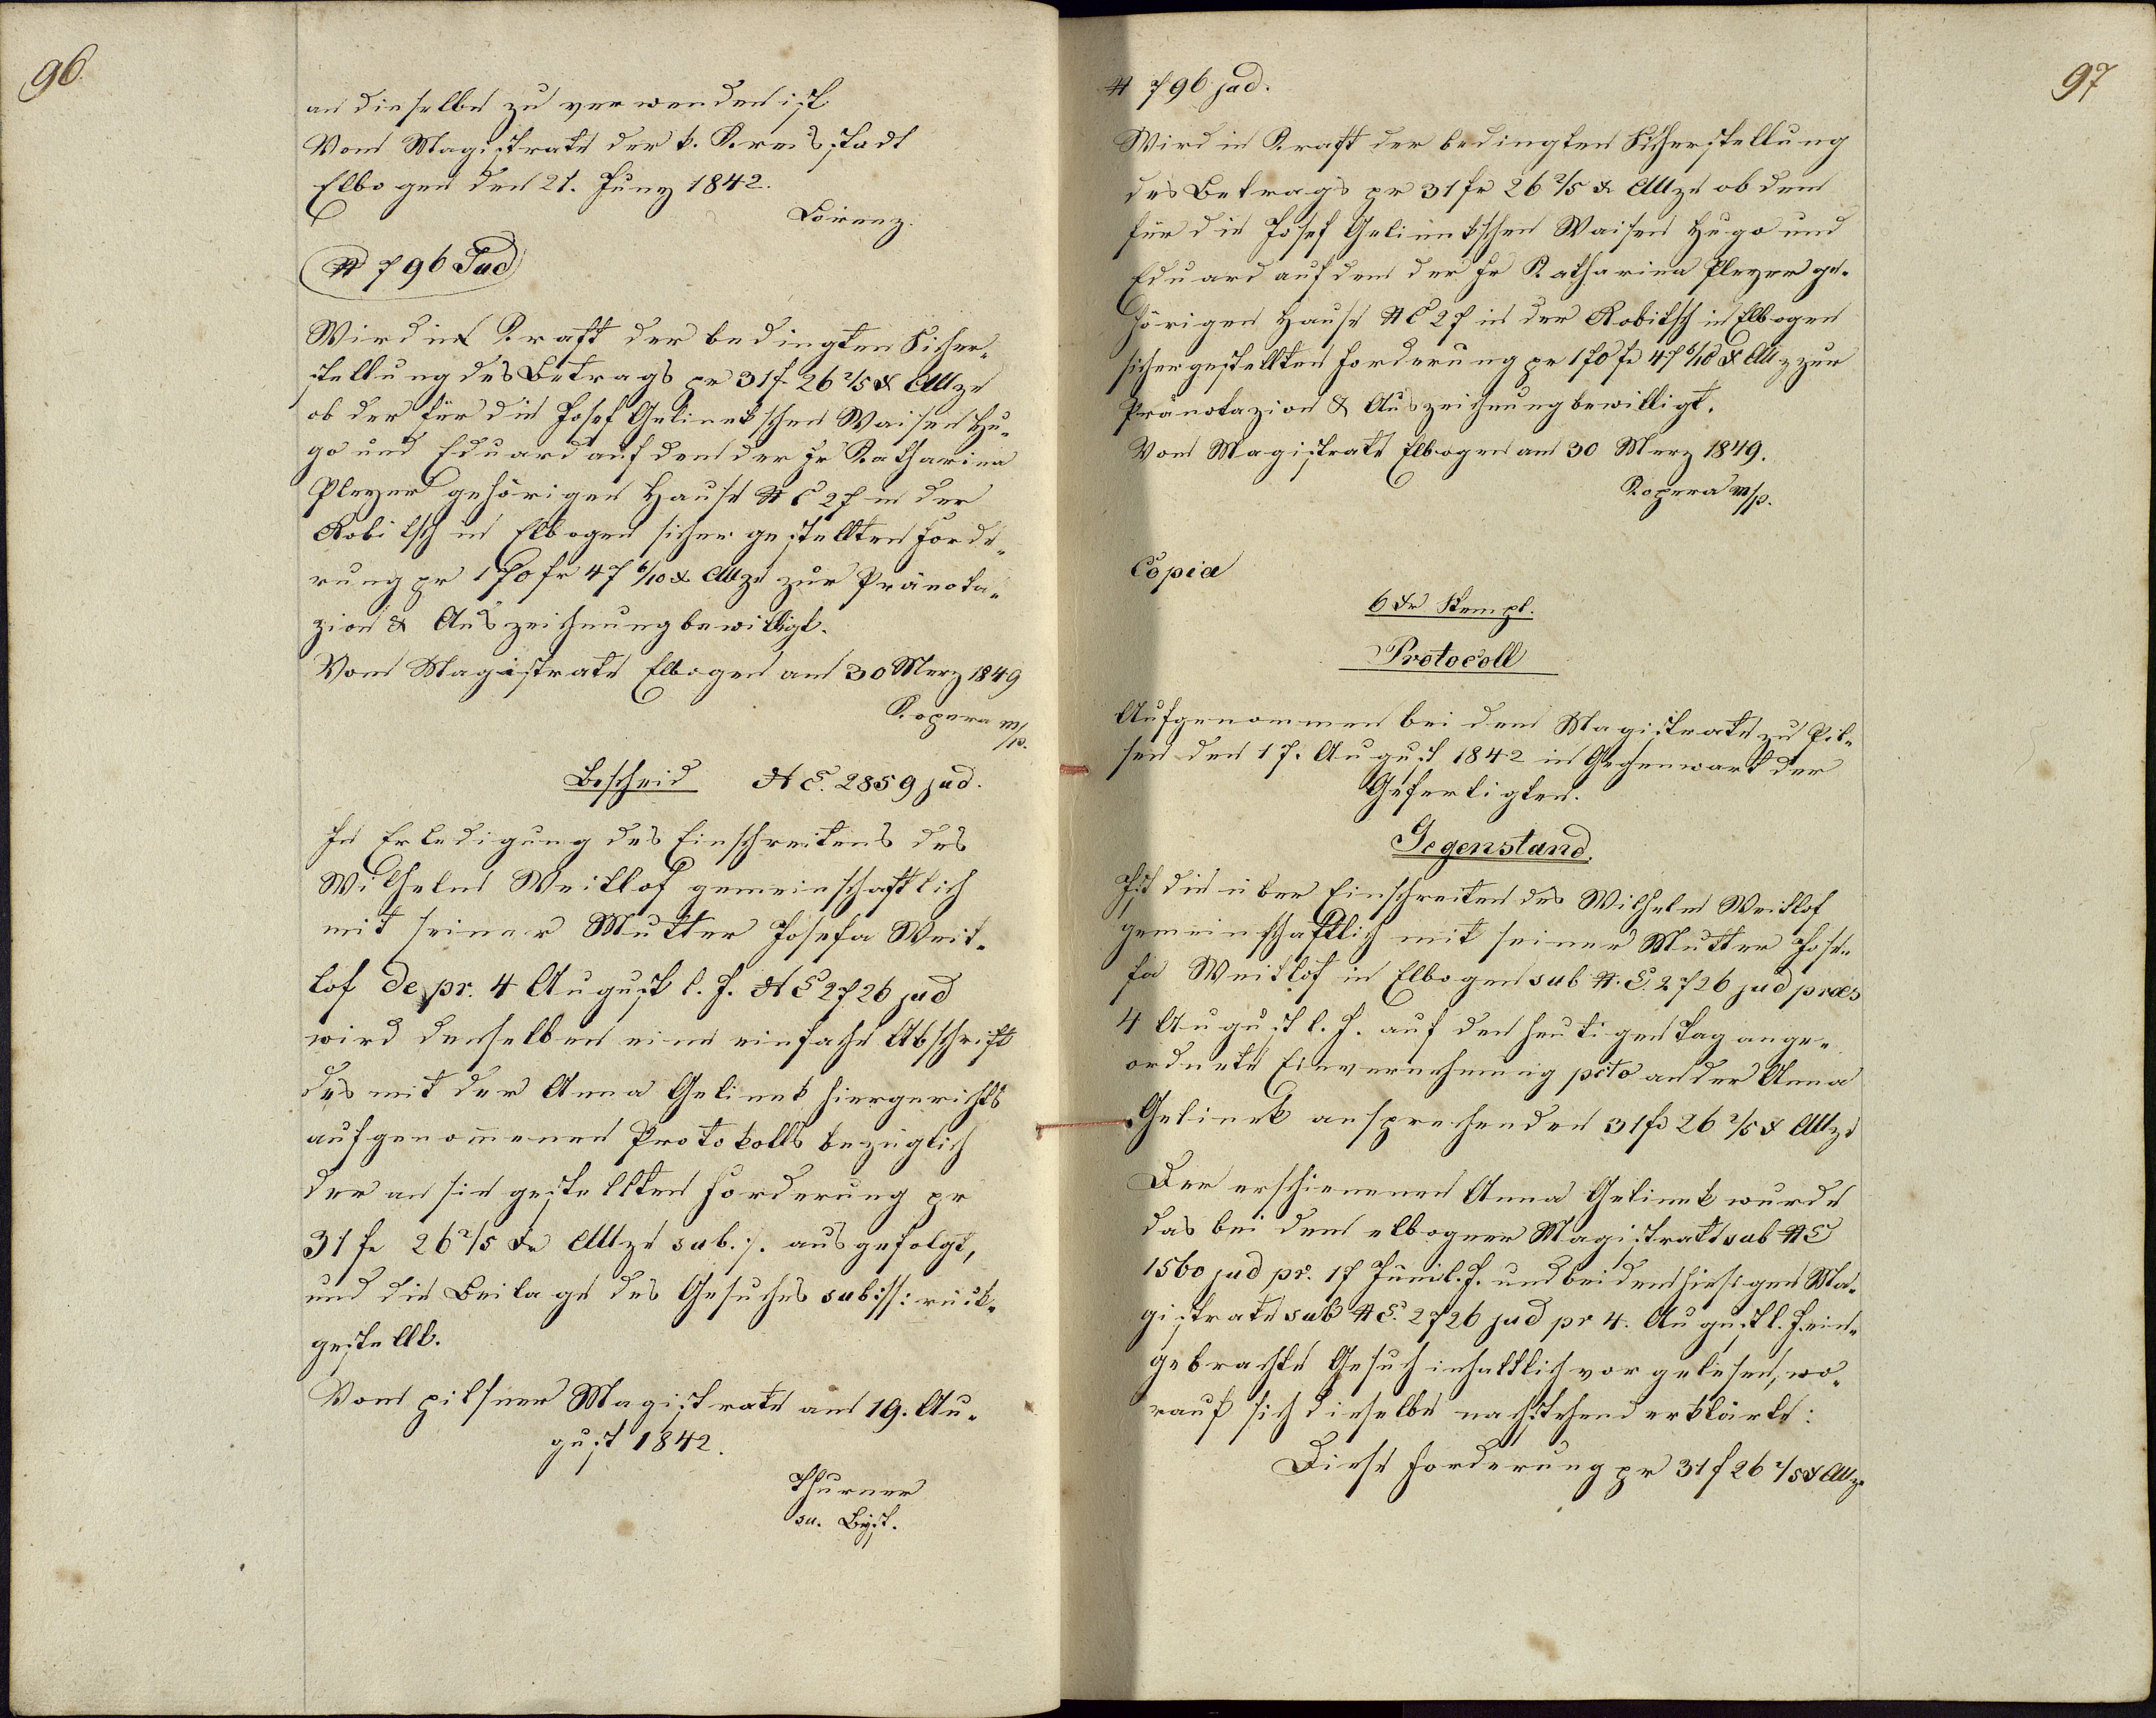 96.
an dieselbe zu verwenden ist
Vom Magistrate der k. Kreisstadt
Elbogen den 21. Juny 1842.
Lorenz.
N 796 Jud
Wird in Kraft der bedingten Sicher„
stellung des Betrags pr 31 f 26 2/5 x CMze
ob der für die Josef Gelinekschen Waisen Hu„
go und Eduard auf dem der Fr Katharina
Pleyer gehörigen Hause N C 27 in der
Robitsch in Elbogen sicher gestellten Forde„
rung pr 170 fr 47 6/10 x CMze zur Pränota„
zion & Auszeichnung bewilligt.
Vom Magistrate Elbogen am 30 Merz 1849
Kopera m/p.
Bescheid N E. 2859 jud.
In Erledigung des Einschreitens des
Wilhelm Weitlof gemeinschaftlich
mit seiner Mutter Josefa Weit„
lof de pr. 4 August l. J. N E 2726 jud
wird denselben eine einfache Abschrift
des mit der Anna Gelinek hiergerichts
aufgenommenen Protokolls bezüglich
der an sie gestellten Forderung pr
31 fr 26 2/5 xr CMze sub ·/. ausgefolgt,
und die Beilage des Gesuches sub ://: rück„
gestellt.
Vom pilsner Magistrate am 19. Au„
gust 1842.
Thurner
97
N 796 jud.
Wird in Kraft der bedingten Sicherstellung
des Betrags pr 31 fr 26 2/5 x CMze ob dem
für die Josef Gelinekschen Waisen Hugo und
Eduard auf dem der Fr Katharina Pleyer ge„
hörigen Hause N C 27 in der Robitsch in Elbogen
sichergestellten Forderung pr 170 fr 47 6/10 x CMz zur
Pränotazion & Auszeichnung bewilligt.
Vom Magistrate Elbogen am 30 Merz 1849.
Kopera m/p.
Copia
6 xr Stempl.
Protocoll
Aufgenommen bei dem Magistrate zu Pil„
sen den 17. August 1842 in Gegenwart der
Gefertigten.
Gegenstand.
Ist die über Einschreiten des Wilhelm Weitlof
gemeinschaftlich mit seiner Mutter Jose„
fa Weitlof in Elbogen sub N. E. 2726 jud præs
4 August l. J. auf den heutigen Tag ange„
ordnete Einvernehmung pcto an der Anna
Gelinek ansprechenden 31 fr 26 2/5 x CMze
Der erschienenen Anna Gelinek wurde
das bei dem elbogner Magistrate sub N E
1560 jud pr. 17 Juni l. J. und bei dem hiesigen Ma„
gistrate sub N E. 2726 jud pr 4. August l. J. ein„
gebrachte Gesuch inhaltlich vorgelesen, wo„
rauf sich dieselbe nachstehend erklärte:
Diese Forderung pr 31 f 26 2/5 x CMze